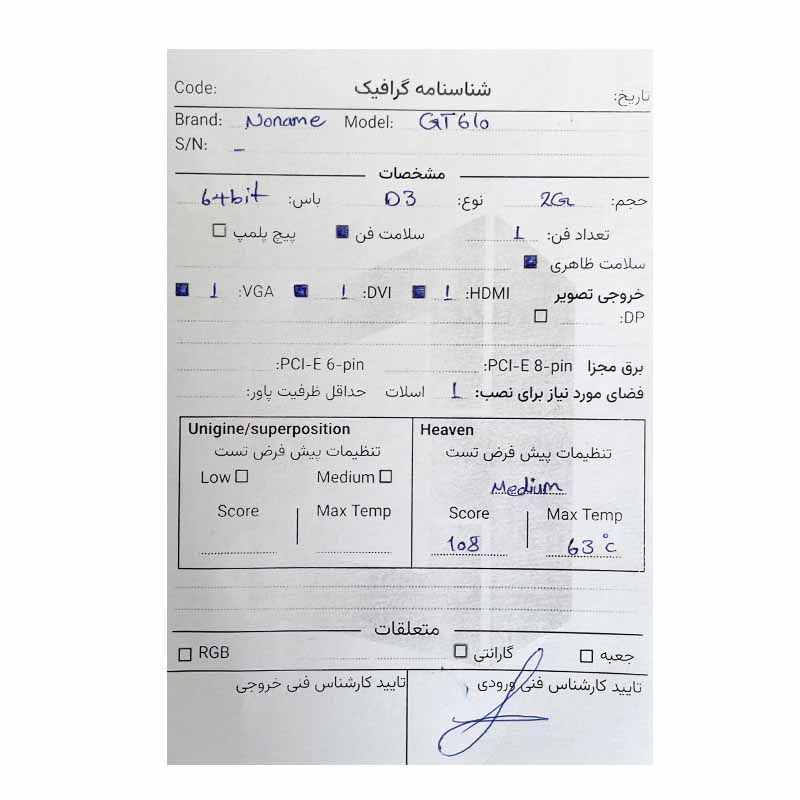 Code: شناسنامه گرافیک تاریخ:
Brand: Noname Model: GT610
S/N: -
مشخصات
حجم: 2G نوع: D3 باس: 64bit
تعداد فن: 1 سلامت فن پیچ پلمپ
سلامت ظاهری
خروجی تصویر HDMI: 1 DVI: 1 VGA: 1
DP:
برق مجزا PCI-E 8-pin: PCI-E 6-pin:
فضای مورد نیاز برای نصب: 1 اسلات حداقل ظرفیت پاور:
Unigine/superposition Heaven
تنظیمات پیش فرض تست تنظیمات پیش فرض تست
Low Medium Medium
Score Max Temp Score Max Temp
108 63°c
متعلقات
جعبه گارانتی RGB
تایید کارشناس فنی ورودی تایید کارشناس فنی خروجی